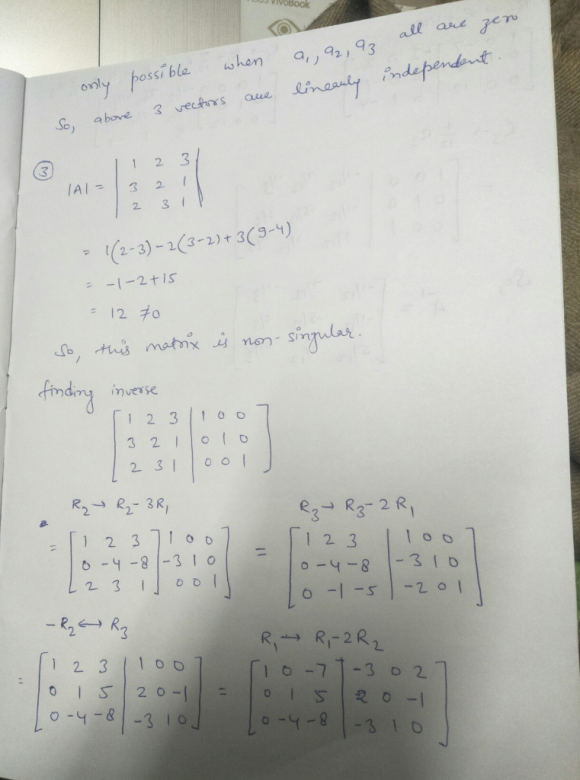 VivoBook
only possible when a₁, a₂, a₃ all are zero
So, above 3 vectors are linearly independent.
③
|A| = | 1 2 3 |
| 3 2 1 |
| 2 3 1 |
= 1(2-3)-2(3-2)+3(9-4)
= -1-2+15
= 12 ≠0
So, this matrix is non-singular.
finding inverse
[ 1 2 3 | 1 0 0 ]
[ 3 2 1 | 0 1 0 ]
[ 2 3 1 | 0 0 1 ]
R₂ → R₂-3R₁
= [ 1 2 3 | 1 0 0 ]
[ 0 -4 -8 | -3 1 0 ]
[ 2 3 1 | 0 0 1 ]
R₃ → R₃-2R₁
= [ 1 2 3 | 1 0 0 ]
[ 0 -4 -8 | -3 1 0 ]
[ 0 -1 -5 | -2 0 1 ]
-R₂ ↔ R₃
= [ 1 2 3 | 1 0 0 ]
[ 0 1 5 | 2 0 -1 ]
[ 0 -4 -8 | -3 1 0 ]
R₁ → R₁-2R₂
= [ 1 0 -7 | -3 0 2 ]
[ 0 1 5 | 2 0 -1 ]
[ 0 -4 -8 | -3 1 0 ]